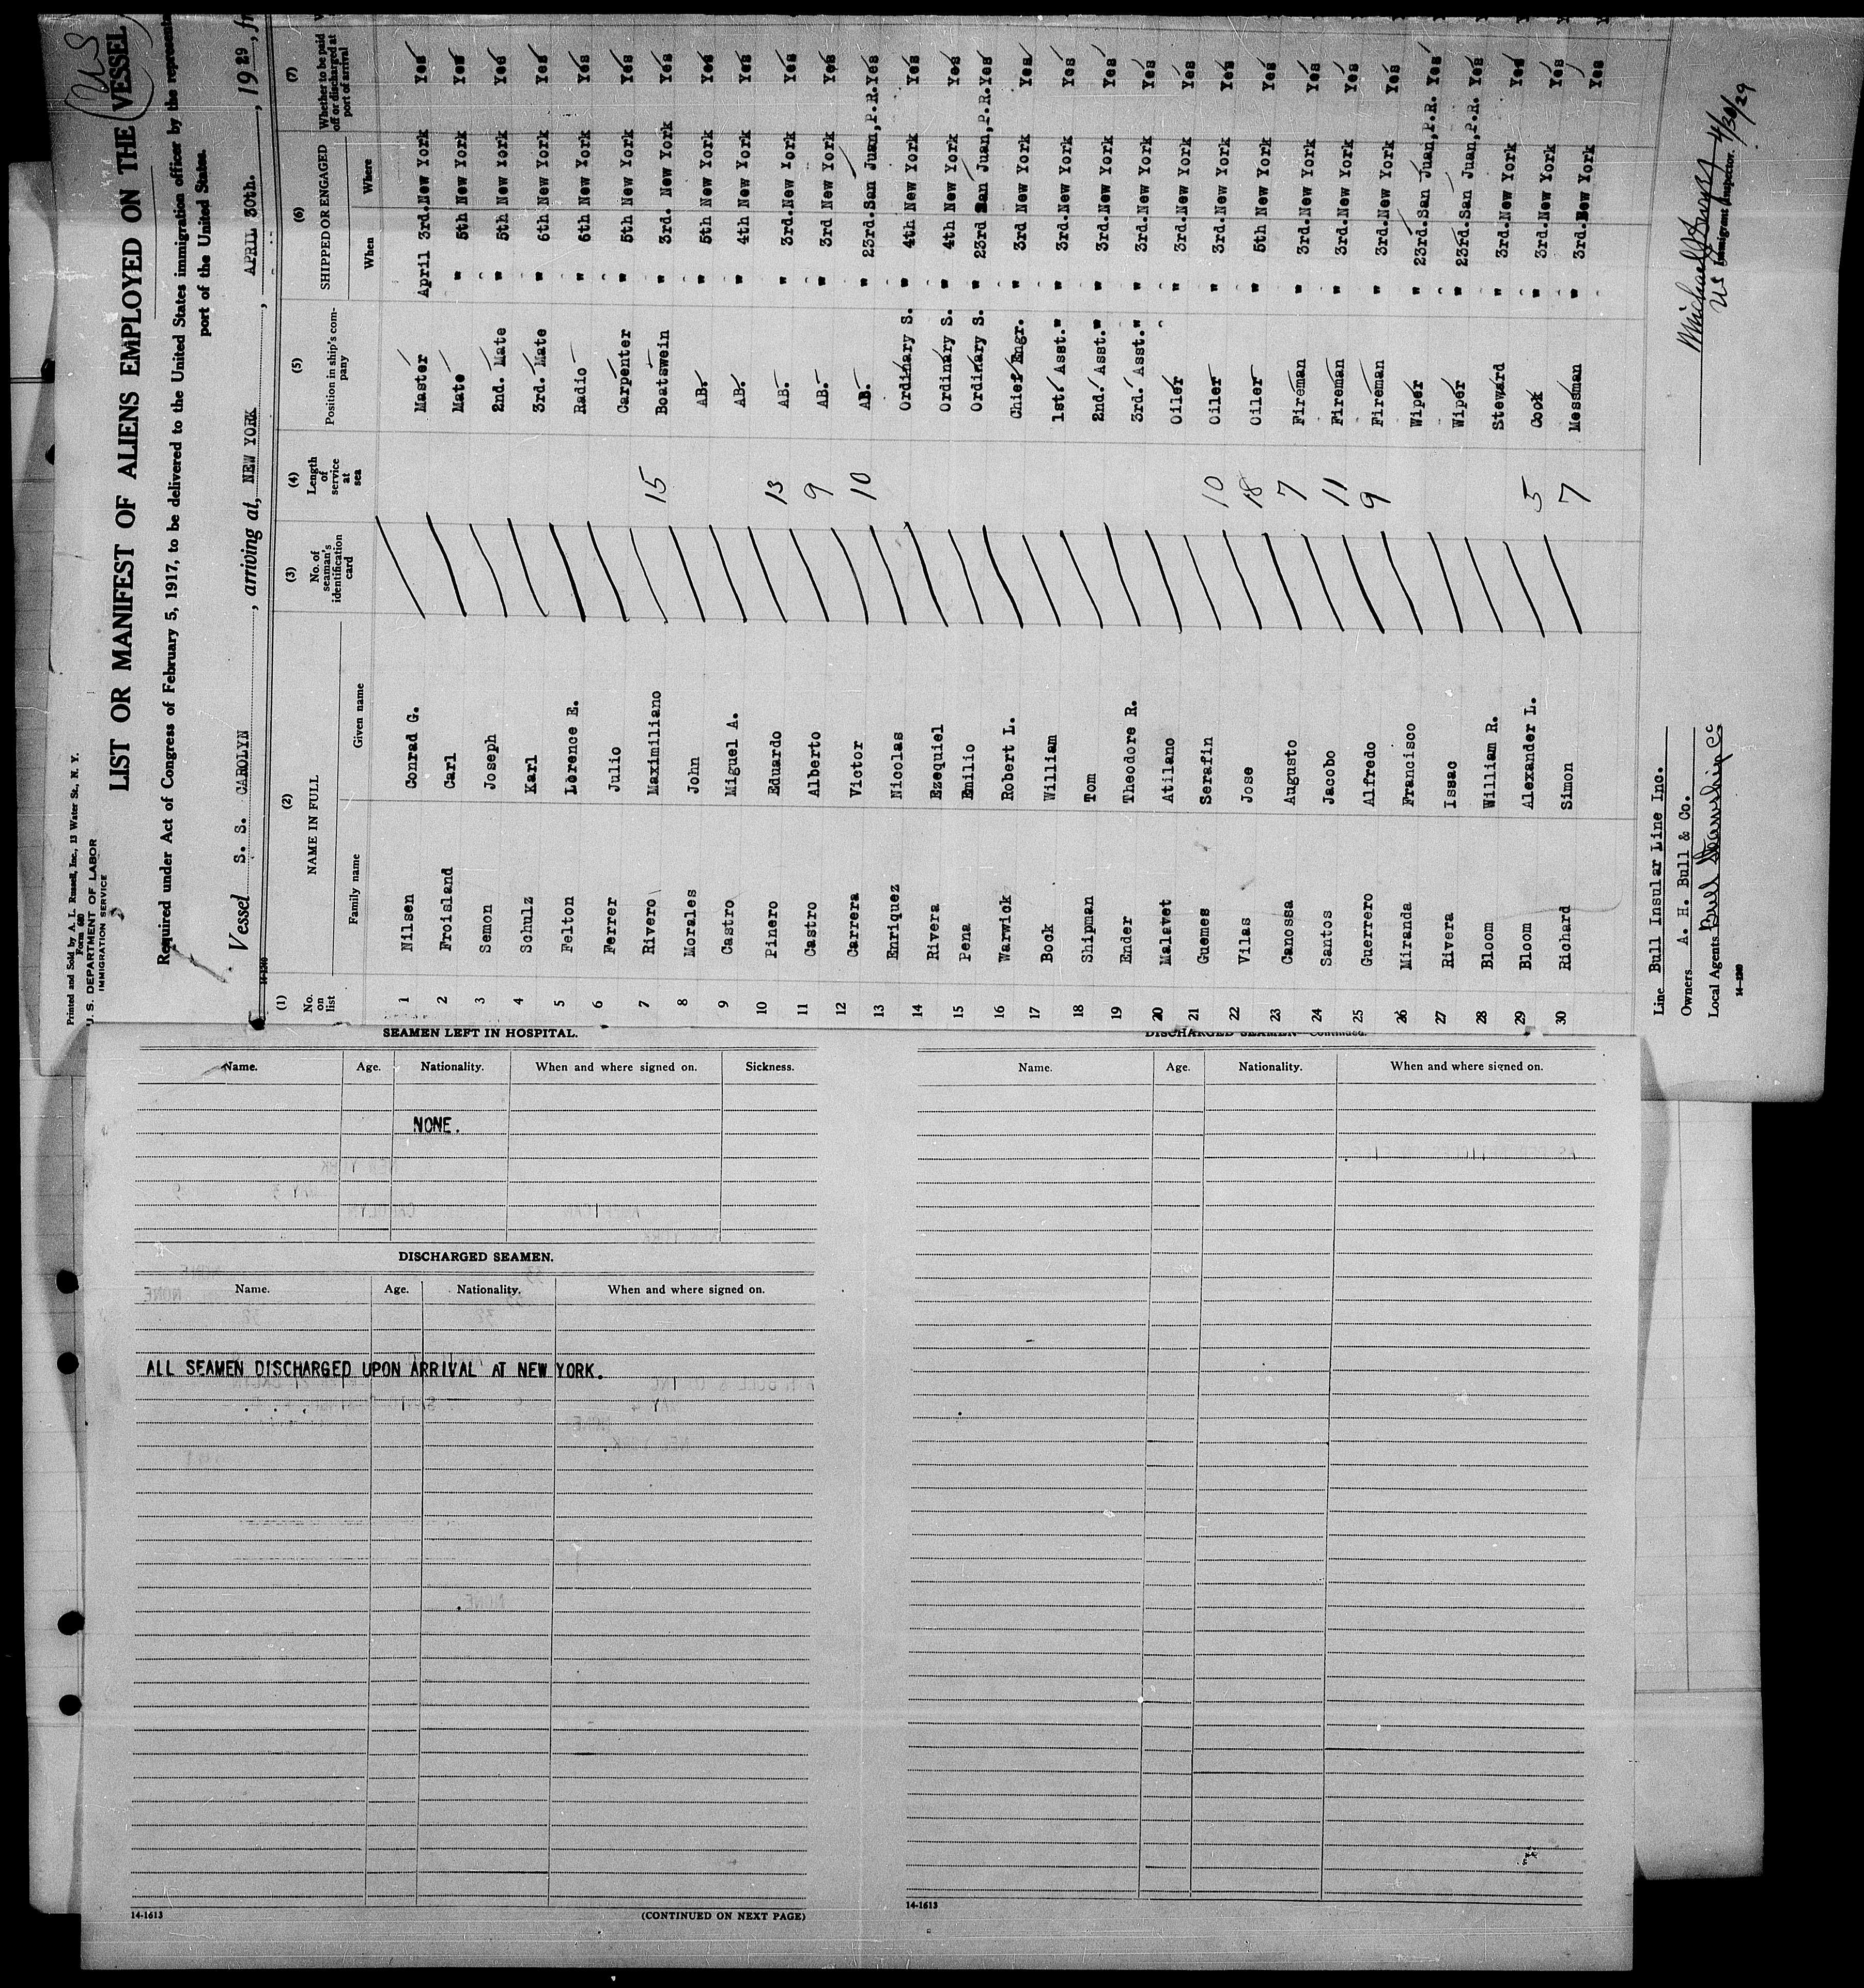 Printed and Sold by A. L. Russell, Inc., 13 Water St., N. Y.
Form 680
U. S. DEPARTMENT OF LABOR
IMMIGRATION SERVICE
US
LIST OR MANIFEST OF ALIENS EMPLOYED ON THE VESSEL
Required under Act of Congress of February 5, 1917, to be delivered to the United States immigration officer by the
port of the United States.
Vessel S. S. CAROLYN, arriving at, NEW YORK, APRIL 30th., 1929,
14-1240
(1) (2) (3) (4) (5) (6) (7)
No. on list NAME IN FULL No. of seaman's identification card Length of service at sea Position in ship's company SHIPPED OR ENGAGED Whether to be paid off or discharged at port of arrival
Family name Given name When Where
1 Nilsen Conrad G. Master April 3rd. New York Yes
2 Froisland Carl Mate " 5th New York Yes
3 Semon Joseph 2nd. Mate " 5th New York Yes
4 Schulz Karl 3rd. Mate " 6th New York Yes
5 Felton Lorence E. Radio " 6th New York Yes
6 Ferrer Julio Carpenter " 5th New York Yes
7 Rivero Maximiliano 15 Boatswein " 3rd. New York Yes
8 Morales John AB. " 5th New York Yes
9 Castro Miguel A. AB. " 4th New York Yes
10 Pinero Eduardo 13 AB. " 3rd. New York Yes
11 Castro Alberto 9 AB. " 3rd New York Yes
12 Carrera Victor 10 AB. " 23rd. San Juan, P.R. Yes
13 Enriquez Nicolas Ordinary S. " 4th New York Yes
14 Rivera Ezequiel Ordinary S. " 4th New York Yes
15 Pena Emilio Ordinary S. " 23rd San Juan, P.R. Yes
16 Warwick Robert L. Chief Engr. " 3rd New York Yes
17 Bock William 1st. Asst. " " 3rd. New York Yes
18 Shipman Tom 2nd. Asst. " " 3rd. New York Yes
19 Ender Theodore R. 3rd. Asst. " " 3rd. New York Yes
20 Malavet Atilano Oiler " 3rd. New York Yes
21 Guemes Serafin 10 Oiler " 3rd. New York Yes
22 Vilas Jose 18 Oiler " 5th New York Yes
23 Canossa Augusto 7 Fireman " 3rd. New York Yes
24 Santos Jacobo 11 Fireman " 3rd. New York Yes
25 Guerrero Alfredo 9 Fireman " 3rd. New York Yes
26 Miranda Francisco Wiper " 23rd. San Juan, P.R. Yes
27 Rivera Issac Wiper " 23rd. San Juan, P.R. Yes
28 Bloom William R. Steward " 3rd. New York Yes
29 Bloom Alexander L. 5 Cook " 3rd. New York Yes
30 Richard Simon 7 Messman " 3rd. New York Yes
Line Bull Insular Line Inc.
Owners A. H. Bull & Co.
Local Agents Bull Steamship Co
14-1240
Michael
US Immigrant Inspector. 4/30/29
SEAMEN LEFT IN HOSPITAL.
Name. Age. Nationality. When and where signed on. Sickness.
NONE.
DISCHARGED SEAMEN.
Name. Age. Nationality. When and where signed on.
ALL SEAMEN DISCHARGED UPON ARRIVAL AT NEW YORK.
14-1613 (CONTINUED ON NEXT PAGE)
DISCHARGED SEAMEN—Continued.
Name. Age. Nationality. When and where signed on.
14-1613